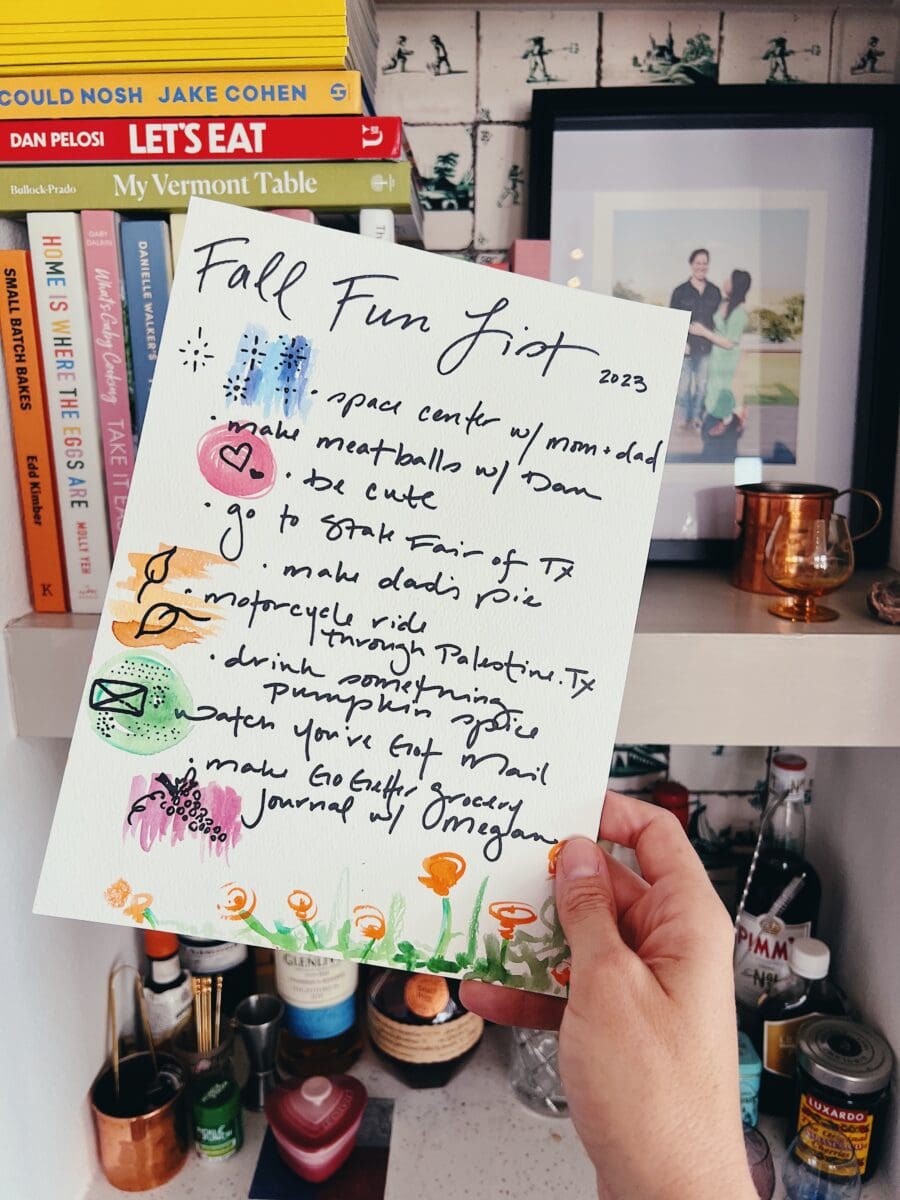 COULD NOSH JAKE COHEN
DAN PELOSI LET'S EAT
Bullock-Prado My Vermont Table
SMALL BATCH BAKES Edd Kimber
HOME IS WHERE THE EGGS ARE MOLLY YEH
GABY DALKIN What's Gaby Cooking TAKE IT EASY
DANIELLE WALKER'S
Fall Fun List
2023
· space center w/ mom + dad
· make meatballs w/ Dan
· be cute
· go to State Fair of TX
· make dad's pie
· motorcycle ride
through Palestine, TX
· drink something
pumpkin spice
watch You've Got Mail
· make GoGetter grocery
journal w/ Megan
PIMM'S
No
LUXARDO